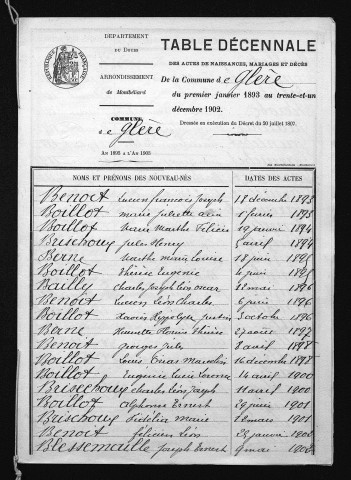 DÉPARTEMENT
DU DOUBS
ARRONDISSEMENT
de Montbéliard
COMMUNE
de Glère
AN 1893 A L'AN 1903
TABLE DÉCENNALE
DES ACTES DE NAISSANCES, MARIAGES ET DÉCÈS
De la Commune de Glère
du premier janvier 1893 au trente-et-un
décembre 1902.
Dressée en exécution du Décret du 20 juillet 1807.
NOMS ET PRÉNOMS DES NOUVEAU-NÉS DATES DES ACTES
Benoit Lucien françois Joseph 18 décembre 1893
Boillot marie Juliette 1893
Boillot Marie Marthe Félicie 19 janvier 1894
Brischoux jules Henry 5 avril 1894
Berne Marthe marie Louise 18 juin 1895
Boillot Thérèse Eugenie juin 1895
Bailly Charles Joseph Léon oscar 22 mai 1896
Benoit Lucien Léon Charles 6 juin 1896
Boillot Xavier Hyppolyte Justin 3 octobre 1896
Berne Thérèse 27 août 1897
Benoit georges Jules 8 avril 1898
Boillot Louis Marcelin 16 décembre 1898
Boillot Eugenie Lucie 14 avril 1900
Brischoux charles Léon Joseph 11 avril 1900
Boillot alphonse Ernest 29 juin 1901
Brischoux Marie 12 mars 1901
Benoit félicien Léon 23 janvier 1902
Blessemaille Joseph Ernest 9 mai 1902